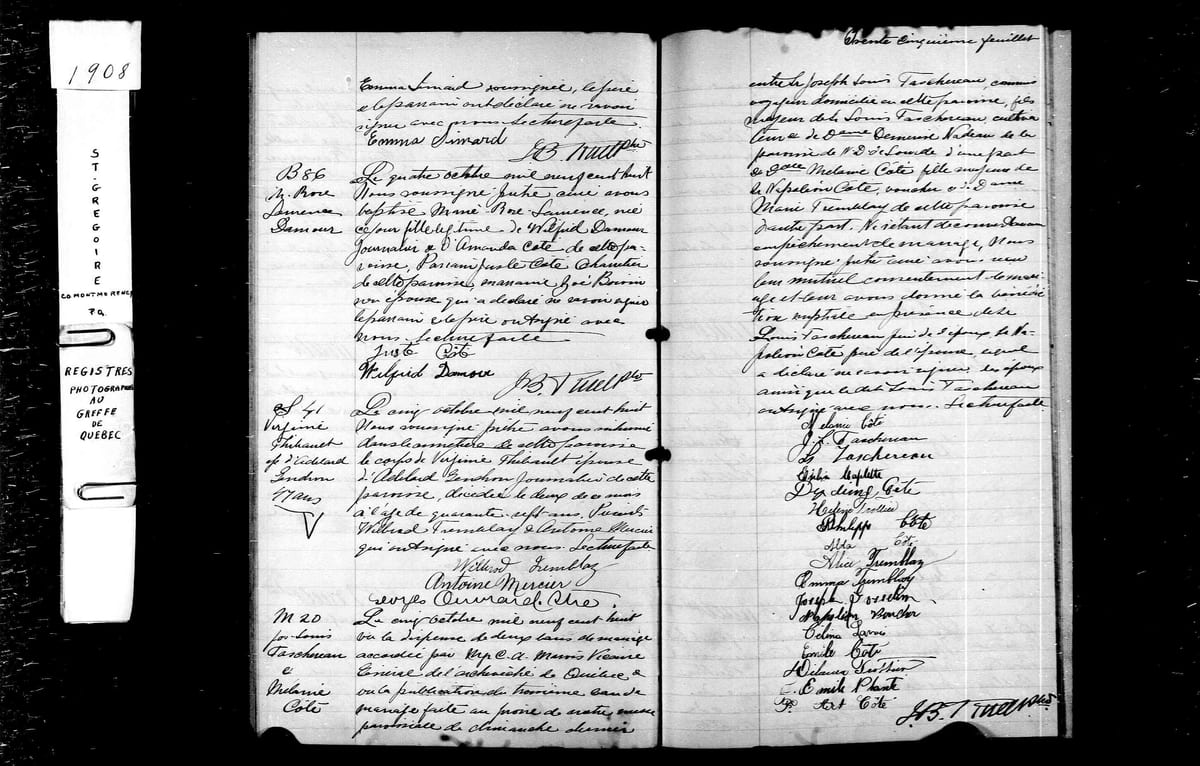 1908
ST-GREGOIRE
CO MONTMORENCY
P.Q.
REGISTRES
PHOTOGRAPHIES
AU
GREFFE
DE
QUÉBEC
Emma Simard soussignée, le père
et le parrain ont déclaré ne savoir
signer avec nous. Lecture faite.
Emma Simard
B 86
M. Rose
Laurence
Damour
Le quatre octobre mil neuf cent huit
Nous soussigné prêtre curé avons
baptisé Marie Rose Laurence, née
ce jour fille légitime de Wilfrid Damour
journalier et d'Amanda Coté de cette pa-
roisse, Parrain Juste Coté Charretier
de cette paroisse, marraine Zoé Boivin
son épouse qui a déclaré ne savoir signer
le parrain et le père ont signé avec
nous. Lecture faite
Juste Côté
Wilfrid Damour
S 41
Virginie
Thibault
ép. d'Adélard
Gendron
47 ans
Le cinq octobre mil neuf cent huit
Nous soussigné prêtre avons inhumé
dans le cimetière de cette paroisse
le corps de Virginie Thibault épouse
d'Adélard Gendron journalier de cette
paroisse, décédée le deux de ce mois
à l'age de quarante-sept ans. Présents
Wilbrod Tremblay et Antoine Mercier
qui ont signé avec nous. Lecture faite
Wilbrod Tremblay
Antoine Mercier
Georges Ptre
M 20
Jos-Louis
Taschereau
&
Mélanie
Côté
Le cinq octobre mil neuf cent huit
vu la dispense de deux bans de mariage
accordée par Mgr C. A. Marois Vicaire
Général de l'archevêché de Québec et
vu la publication du troisième ban de
mariage faite au prone de notre messe
paroissiale de dimanche dernier
Trente cinquième feuillet
entre Joseph Louis Taschereau, commis
voyageur domicilié en cette paroisse, fils
majeur de Louis Taschereau, cultiva
teur et de Dame Démerise Nadeau de la
paroisse de N.D. de Lourde d'une part
et Dlle Mélanie Coté fille majeure de
Napoléon Coté, boucher et de Dame
Marie Tremblay de cette paroisse
d'autre part. Ne s'étant découvert aucun
empêchement de mariage, Nous
soussigné prêtre curé avons reçu
leur mutuel consentement de mari-
age et leur avons donné la bénédic
tion nuptiale en présence de
Louis Taschereau père de l'époux de Na-
poléon Coté père de l'épouse, lequel
a déclaré ne savoir signer les époux
ainsi que le dit Louis Taschereau
ont signé avec nous. Lecture faite
Mélanie Côté
J. L. Taschereau
L. Taschereau
Côté
Philippe Côté
Alda Côté
Alice Tremblay
Emma Tremblay
Joseph
Napoléon
Emile Côté
Emile Plante
Art Côté